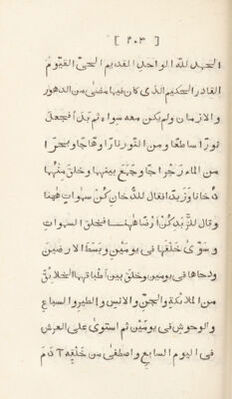 [ ٢٠٣ ]
الحمد لله الواحد القديم الحىّ القيّوم
القادر الحكيم الذى كان فيما مضى من الدهور
والازمان ولم يكن معه سواء ثم بدا فجعل
نورًا ساطعًا و من النّور نارًا وهّاجًا وبحرًا
من الماء رجراجًا وجمع بينها وخلق منها
دخانًا وزبدًا فقال للدّخان كن سموات هُنا
وقال للزّبد كن ارضًا هٰهنا فخلق السموات
وسوّى خلقها فى يومين وبسط الارضين
ودحاها فى يومين وخلق بين اطباقها الخلائق
من الملائكة والجنّ والانس والطير والسباع
والوحوش فى يومين ثم استوى على العرش
فى اليوم السابع واصطفى من خلقه آدم